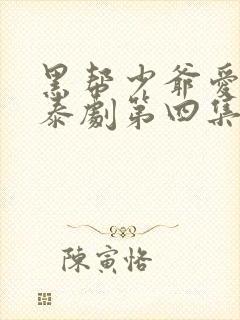 黑帮少爷爱
泰劇第四集
陳寅恪